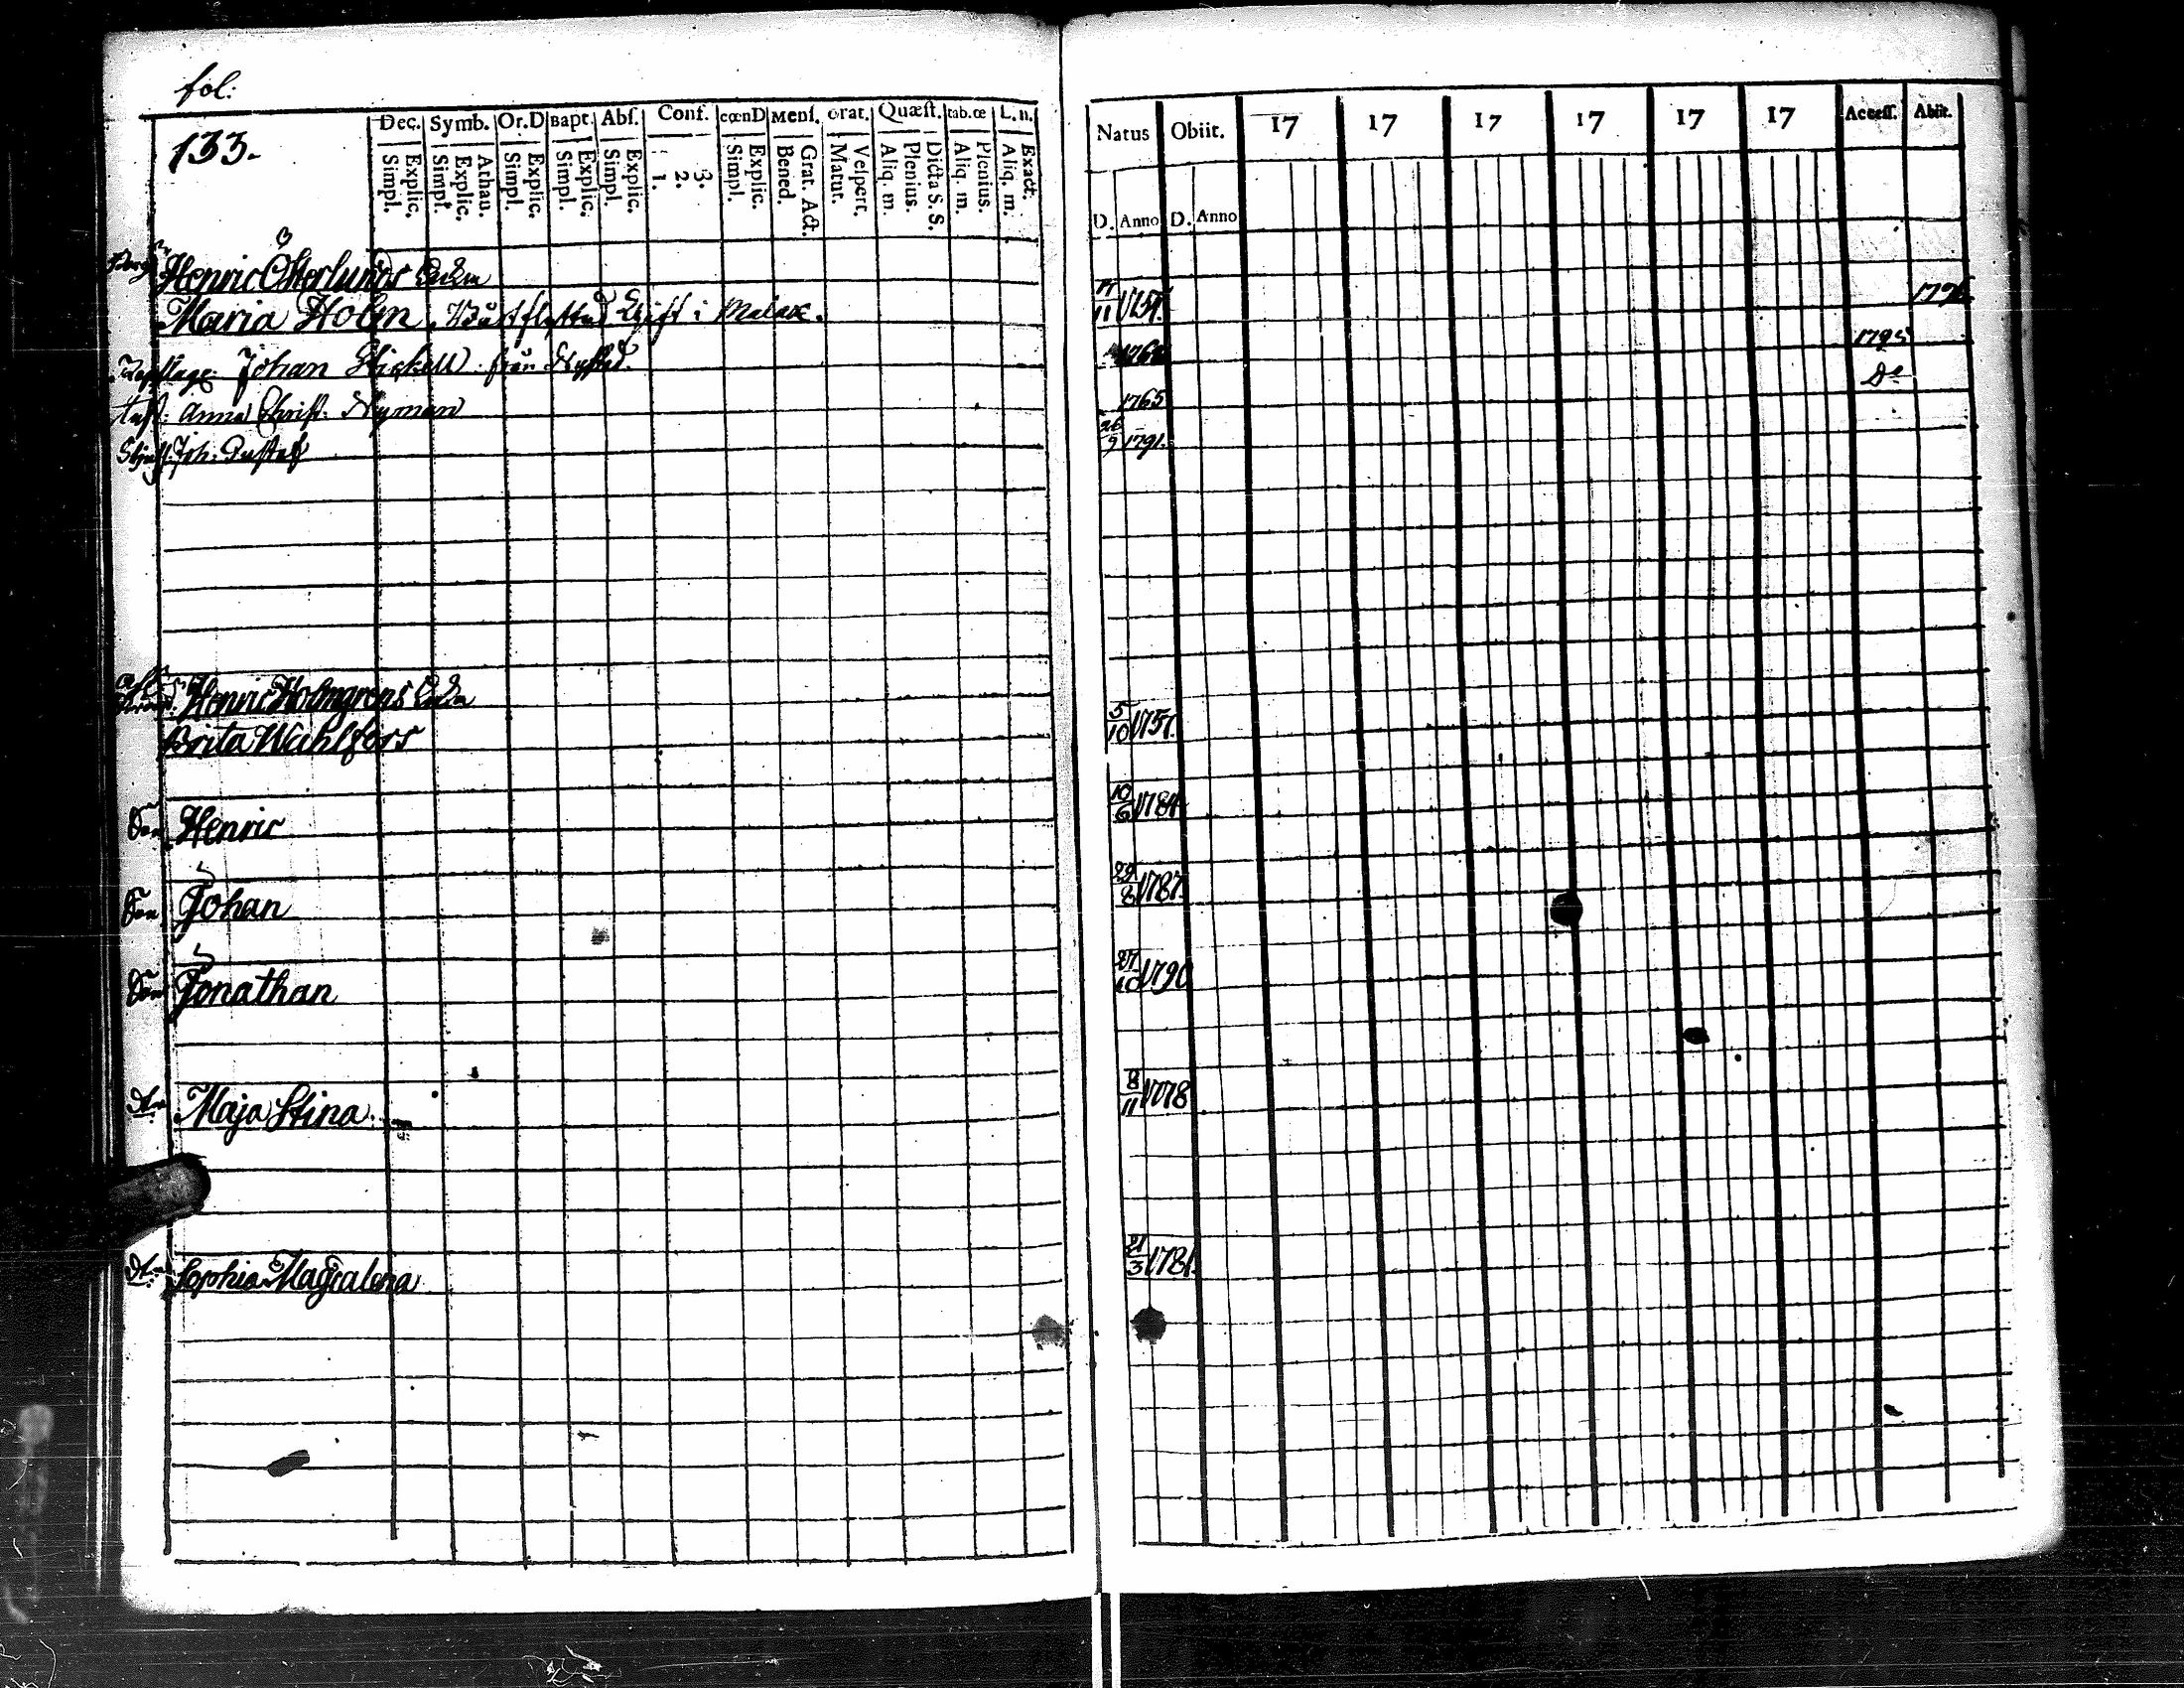 fol:
133.
Dec. Symb. Or.D Bapt. Abſ. Conf. cœnD Menſ. Orat. Quæſt. tab.œ L. n.
Simpl. Explic. Simpl. Explic. Athan. Simpl. Explic. Simpl. Explic. Simpl. Explic. 1. 2. 3. Simpl. Explic. Bened. Grat. Act. Matut. Veſpert. Aliq. m. Plenius. Dicta S. S. Aliq. m. Plenius. Aliq. m. Exact.
Natus Obiit. 17 17 17 17 17 17 Acceſſ. Abiit.
D. Anno D. Anno
Henric Österlunds Enka
Maria Holm 11 175 179
Johan från Nystad 1795
Anna Christ: Nyman 1765 Do
Joh: Gustaf 26/9 1791.
Henric Holmgrens Enka
Brita Wahlfors 5/10 1757.
Son Henric 10/6 1784
Son Johan 22/8 1787.
Son Jonathan 27/10 1790
dtr Maja Stina 8/11 1778
dtr Sophia Magdalena 21/3 1781.